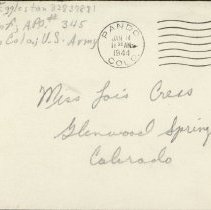 Eggleston 37837881
Inf, A.P.O. # 345
Colo, U.S. Army
PANDO
JAN 14
11 30 AM
1944
COLO.
Miss Lois Cress
Glenwood Spring
Colorado